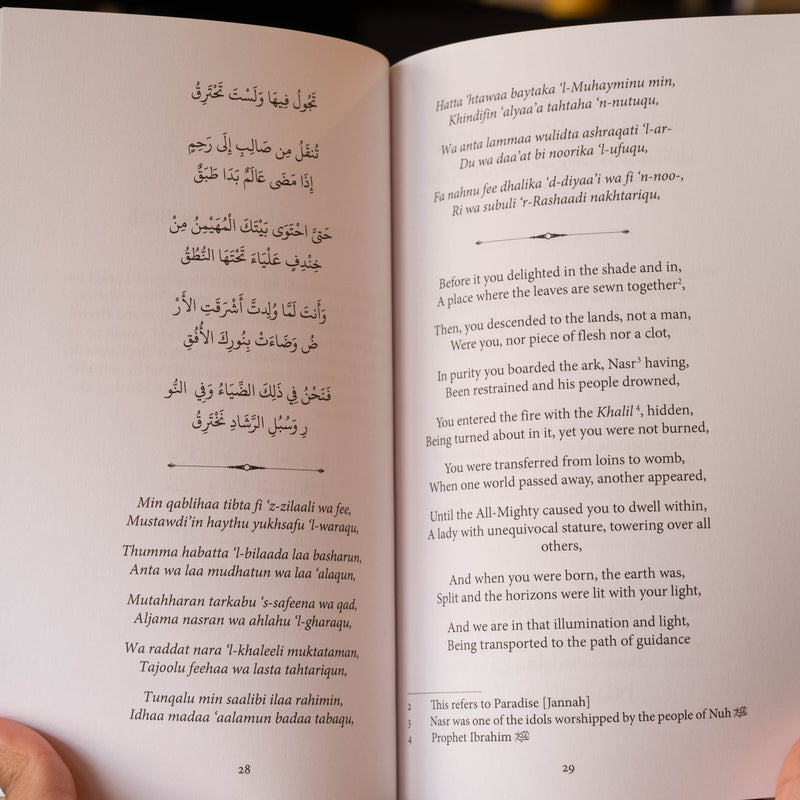 تَجُولُ فِيهَا وَلَسْتَ تَحْتَرِقُ
تُنقَلُ مِن صَالِبٍ إِلَى رَحِمٍ
إِذَا مَضَى عَالَمٌ بَدَا طَبَقٌ
حَتَّى احْتَوَى بَيْتَكَ الْمُهَيْمِنُ مِنْ
خِنْدِفٍ عَلْيَاءَ تَحْتَهَا النُّطُقُ
وَأَنتَ لَمَّا وُلِدتَّ أَشْرَقَتِ الأَرْ
ضُ وَضَاءَتْ بِنُورِكَ الأُفُقِ
فَنَحْنُ فِي ذَلِكَ الضِّيَاءِ وَفِي النُّو
رِ وَسُبُلِ الرَّشَادِ نَخْتَرِقُ
Min qablihaa tibta fi ‘z-zilaali wa fee,
Mustawdi’in haythu yukhsafu ‘l-waraqu,
Thumma habatta ‘l-bilaada laa basharun,
Anta wa laa mudhatun wa laa ‘alaqun,
Mutahharan tarkabu ‘s-safeena wa qad,
Aljama nasran wa ahlahu ‘l-gharaqu,
Wa raddat nara ‘l-khaleeli muktataman,
Tajoolu feehaa wa lasta tahtariqun,
Tunqalu min saalibi ilaa rahimin,
Idhaa madaa ‘aalamun badaa tabaqu,
28
Hatta ‘htawaa baytaka ‘l-Muhayminu min,
Khindifin ‘alyaa’a tahtaha ‘n-nutuqu,
Wa anta lammaa wulidta ashraqati ‘l-ar-
Du wa daa’at bi noorika ‘l-ufuqu,
Fa nahnu fee dhalika ‘d-diyaa’i wa fi ‘n-noo-,
Ri wa subuli ‘r-Rashaadi nakhtariqu,
Before it you delighted in the shade and in,
A place where the leaves are sewn together²,
Then, you descended to the lands, not a man,
Were you, nor piece of flesh nor a clot,
In purity you boarded the ark, Nasr³ having,
Been restrained and his people drowned,
You entered the fire with the Khalil⁴, hidden,
Being turned about in it, yet you were not burned,
You were transferred from loins to womb,
When one world passed away, another appeared,
Until the All-Mighty caused you to dwell within,
A lady with unequivocal stature, towering over all
others,
And when you were born, the earth was,
Split and the horizons were lit with your light,
And we are in that illumination and light,
Being transported to the path of guidance
2 This refers to Paradise [Jannah]
3 Nasr was one of the idols worshipped by the people of Nuh
4 Prophet Ibrahim ﷺ
29